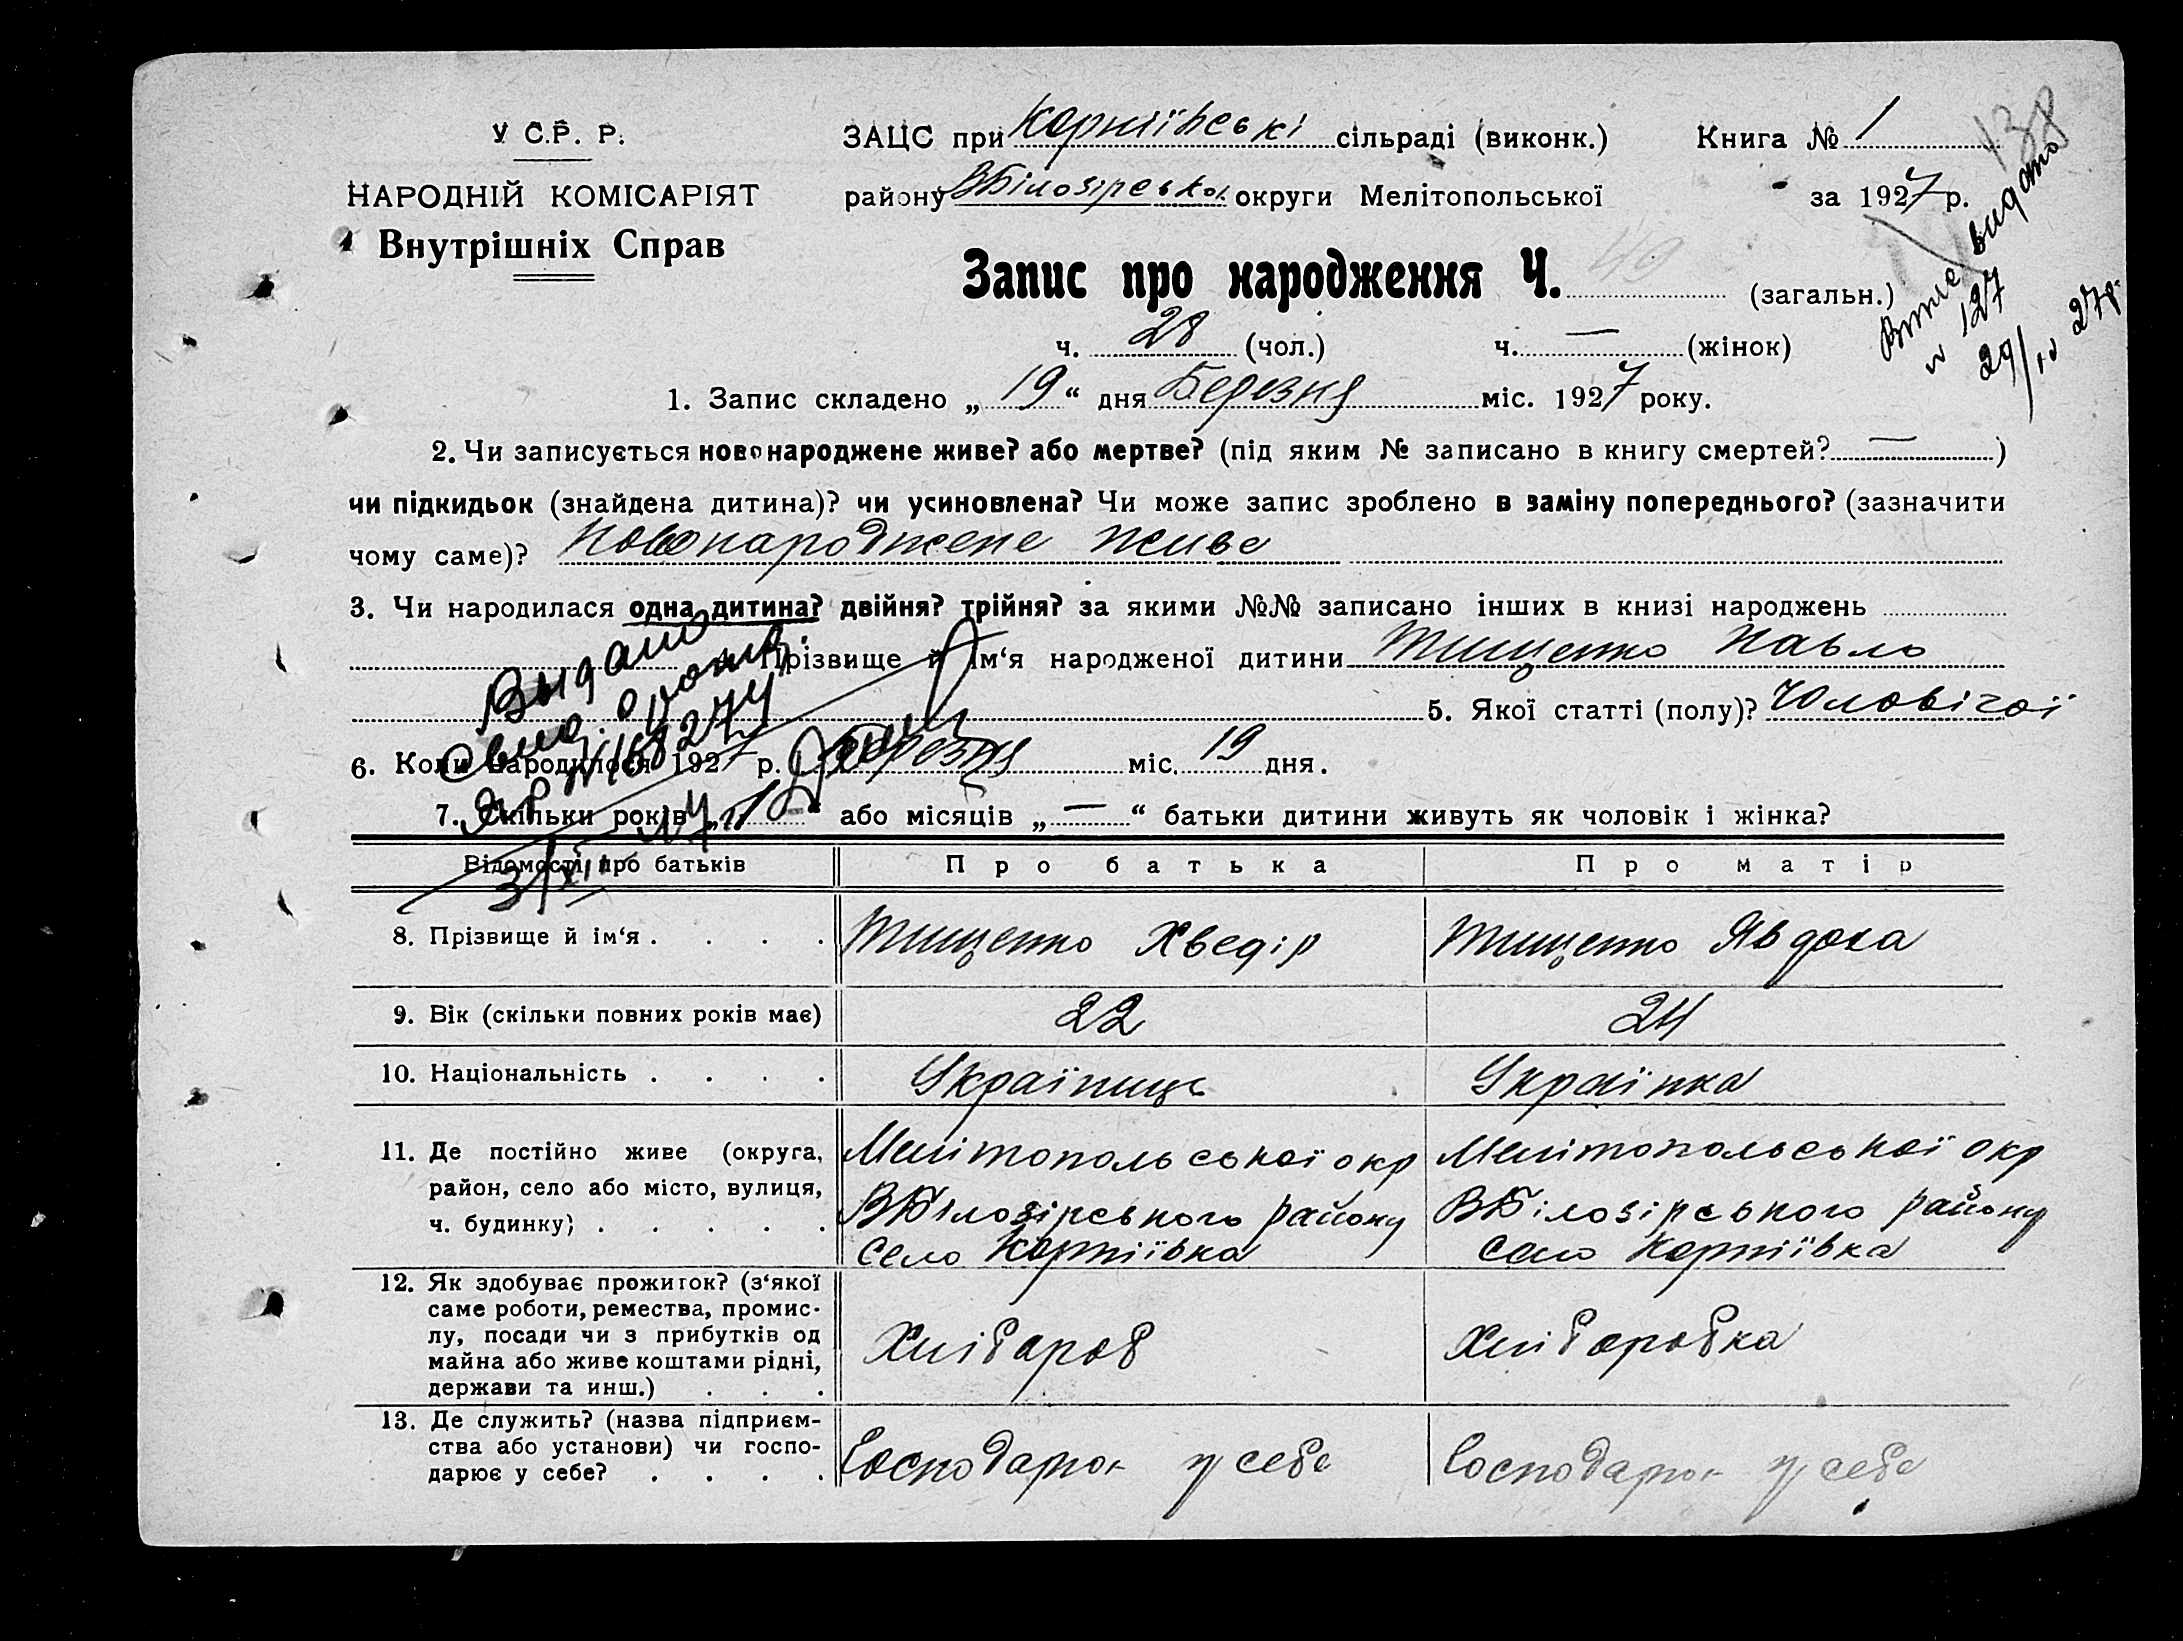 У С.Р. Р.
НАРОДНІЙ КОМІСАРІЯТ
Внутрішніх Справ
ЗАЦС при Корніївські сільраді (виконк.)
Книга № 1
138
району ВБілозірської округи Мелітопольської
за 1927 р.
Запис про народження Ч. 49 (загальн.)
видато
№ 127
29/IV 27р.
ч. 28 (чол.) ч. — (жінок)
1. Запис складено „ 19 “ дня Березня міс. 1927 року.
2. Чи записується новонароджене живе? або мертве? (під яким № записано в книгу смертей? — )
чи підкидьок (знайдена дитина)? чи усиновлена? Чи може запис зроблено в заміну попереднього? (зазначити
чому саме)? Новонароджене живе
3. Чи народилася одна дитина? двійня? трійня? за якими №№ записано інших в книзі народжень
Прізвище й ім‘я народженої дитини Тищенко Павло
5. Якої статті (полу)? Чоловічої
6. Коли народилося 1927 р. Березня міс. 19 дня.
7. Скільки років „ 1 “ або місяців „ — “ батьки дитини живуть як чоловік і жінка?
Выдано
Свид. о рожд.
Відомості про батьків
Про батька
Про матір
8. Прізвище й ім‘я
Тищенко Хведір
Тищенко Явдоха
9. Вік (скільки повних років має)
22
24
10. Національність
Україниць
Українка
11. Де постійно живе (округа,
район, село або місто, вулиця,
ч. будинку)
Мелітопольської окр
ВБілозірського району
село Корніївка
Мелітопольської окр
ВБілозірського району
село Корніївка
12. Як здобуває прожиток? (з‘якої
саме роботи, ремества, промис-
лу, посади чи з прибутків од
майна або живе коштами рідні,
держави та инш.)
Хлібароб
Хлібаробка
13. Де служить? (назва підприєм-
ства або установи) чи госпо-
дарює у себе?
у себе
у себе